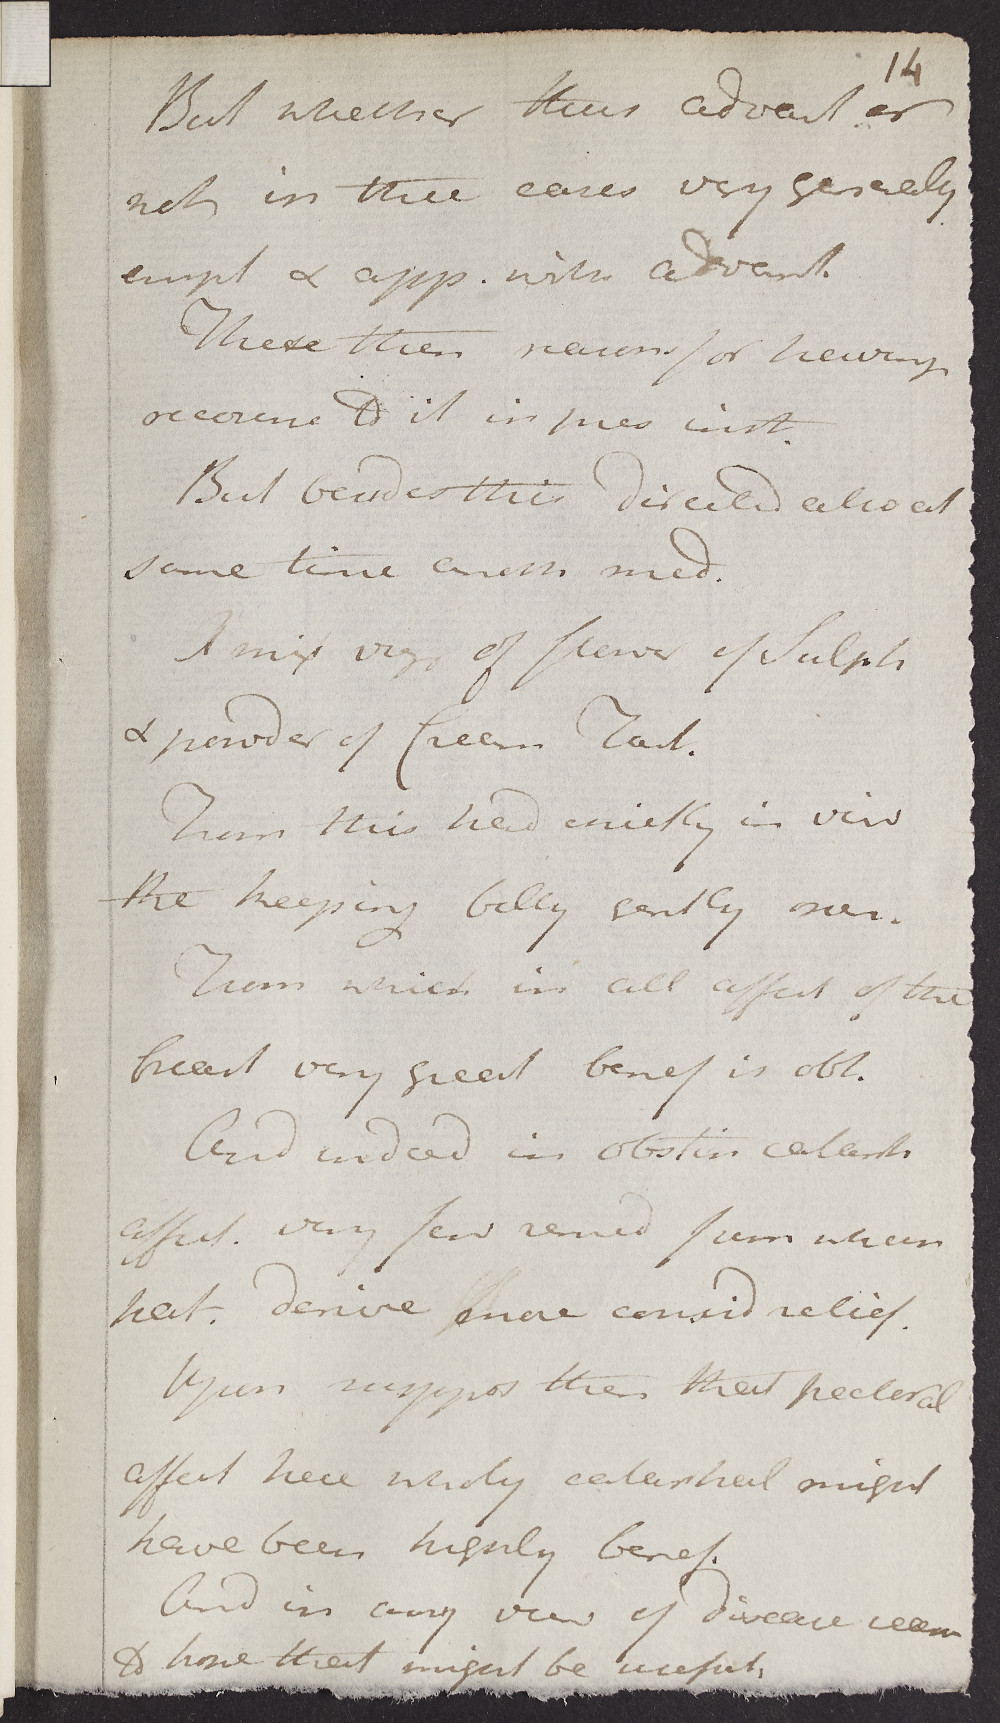 14
But whether thus advant or
not in thee cases very generally
empl & app. with advant.
These then reasons for having
recourse to it in pres inst.
But besides this directed also at
same time anoth med.
A mixt viz of flower of Sulph
& powder of Cream Tart.
From this had chiefly in view
the keeping belly gently open.
From which in all affect of the
breast very great benef is obt.
And indeed in obstin catarrh
affect. very few remed from whom
pat. derive more consid relief.
Upon suppos then that pectoral
affect here wholy catarrhal might
have been highly benef.
And in any view of disease
to hope that might be useful,